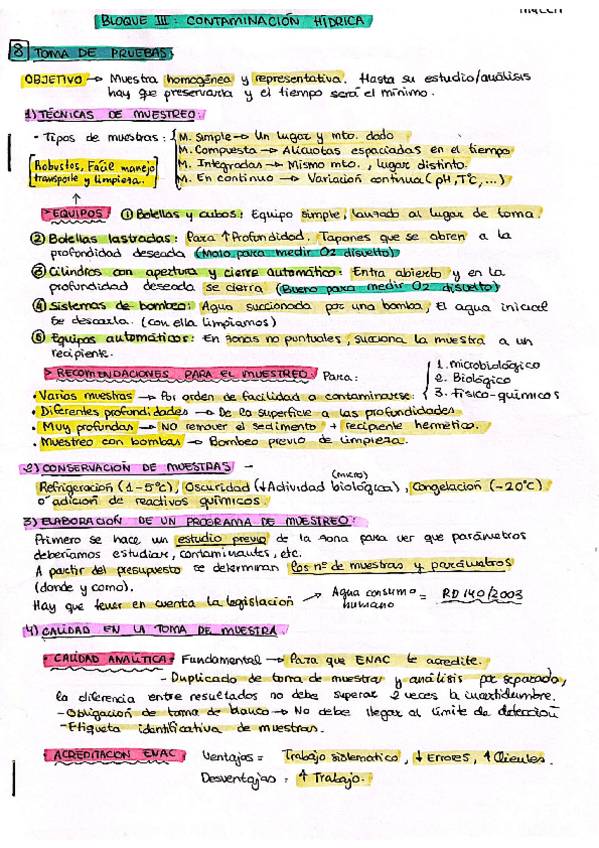 BLOQUE III: CONTAMINACIÓN HÍDRICA
8 TOMA DE PRUEBAS
OBJETIVO → Muestra homogénea y representativa. Hasta su estudio/análisis
hay que preservarla y el tiempo será el mínimo.
1) TÉCNICAS DE MUESTREO:
- Tipos de muestras: { M. Simple → Un lugar y mto. dado
M. Compuesta → Alicuotas espaciadas en el tiempo
M. Integradas → Mismo mto., lugar distinto.
M. En continuo → Variación continua (pH, TºC, ...)
[Robustos, Fácil manejo
transporte y limpieza.]
↑
> EQUIPOS: ① Botellas y cubos: Equipo simple, lanzado al lugar de toma.
② Botellas lastradas: Para ↑ Profundidad. Tapones que se abren a la
profundidad deseada (Malo para medir O2 disuelto)
③ Cilindros con apertura y cierre automático: Entra abierto y en la
profundidad deseada se cierra (Bueno para medir O2 disuelto)
④ Sistemas de bombeo: Agua succionada por una bomba, El agua inicial
se descarta. (con ella limpiamos)
⑤ Equipos automáticos: En zonas no puntuales, succiona la muestra a un
recipiente.
> RECOMENDACIONES PARA EL MUESTREO: Para: { 1. microbiológico
2. Biológico
3. Físico-químicos
• Varias muestras → Por orden de facilidad a contaminarse:
• Diferentes profundidades → De la superficie a las profundidades.
• Muy profundas → NO remover el sedimento + recipiente hermético.
• Muestreo con bombas → Bombeo previo de limpieza.
2) CONSERVACIÓN DE MUESTRAS -
(micro)
Refrigeración (1-5ºC), Oscuridad (↓Actividad biológica), Congelación (-20ºC)
o adición de reactivos químicos.
3) ELABORACIÓN DE UN PROGRAMA DE MUESTREO:
Primero se hace un estudio previo de la zona para ver que parámetros
deberíamos estudiar, contaminantes, etc.
A partir del presupuesto se determinan los nº de muestras y parámetros
(donde y como).
Hay que tener en cuenta la legislación → Agua consumo humano = RD 140/2003
4) CALIDAD EN LA TOMA DE MUESTRA.
- CALIDAD ANALÍTICA: Fundamental → Para que ENAC te acredite.
- Duplicado de toma de muestras y análisis por separado,
la diferencia entre resultados no debe superar 2 veces la incertidumbre.
- Obligación de toma de blanco → No debe llegar al límite de detección
- Etiqueta identificativa de muestras.
- ACREDITACION ENAC: Ventajas = Trabajo sistematico, ↓ Errores, ↑ Clientes.
Desventajas: ↑ Trabajo.